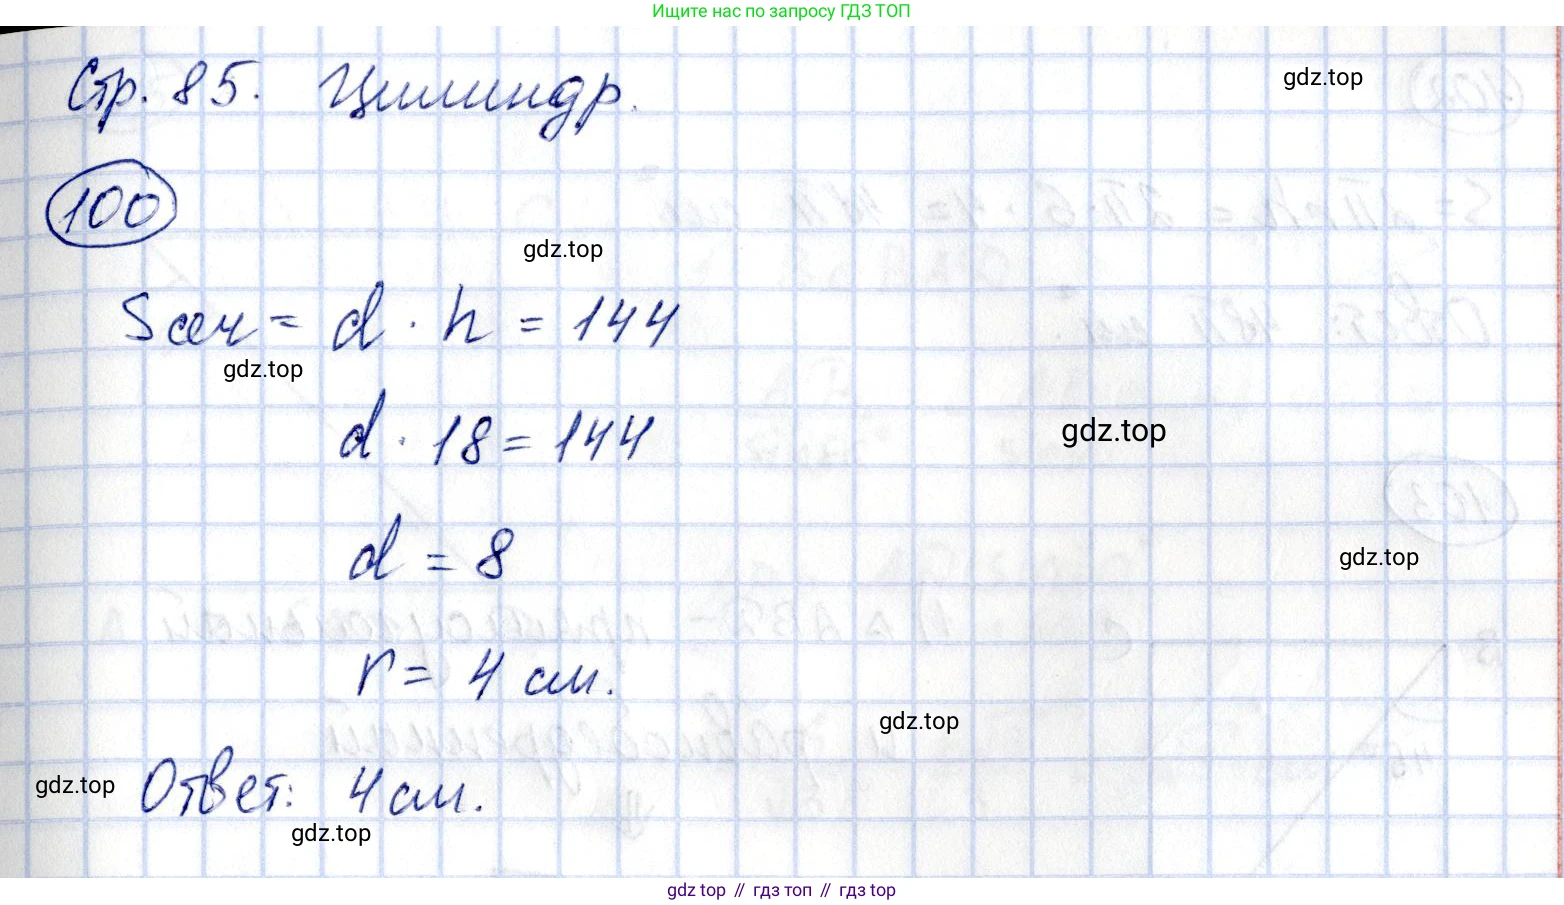 Ищите нас по запросу ГДЗ ТОП
Стр. 85. Цилиндр.
gdz.top
100
gdz.top
Sсеч = d · h = 144
gdz.top
d · 18 = 144
gdz.top
d = 8
gdz.top
r = 4 см.
gdz.top
gdz.top
Ответ: 4 см.
gdz.top
gdz top // гдз топ // гдз top